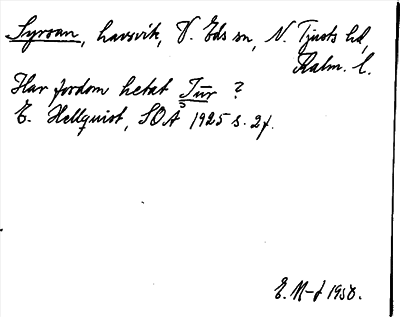 Syrsan, havsvik, V. Eds sn, N. Tjusts hd,
Kalm. l.
Har fordom hetat Sūr ?
E. Hellquist, SOÅ 1925 s. 27.
E. M-f 1950.